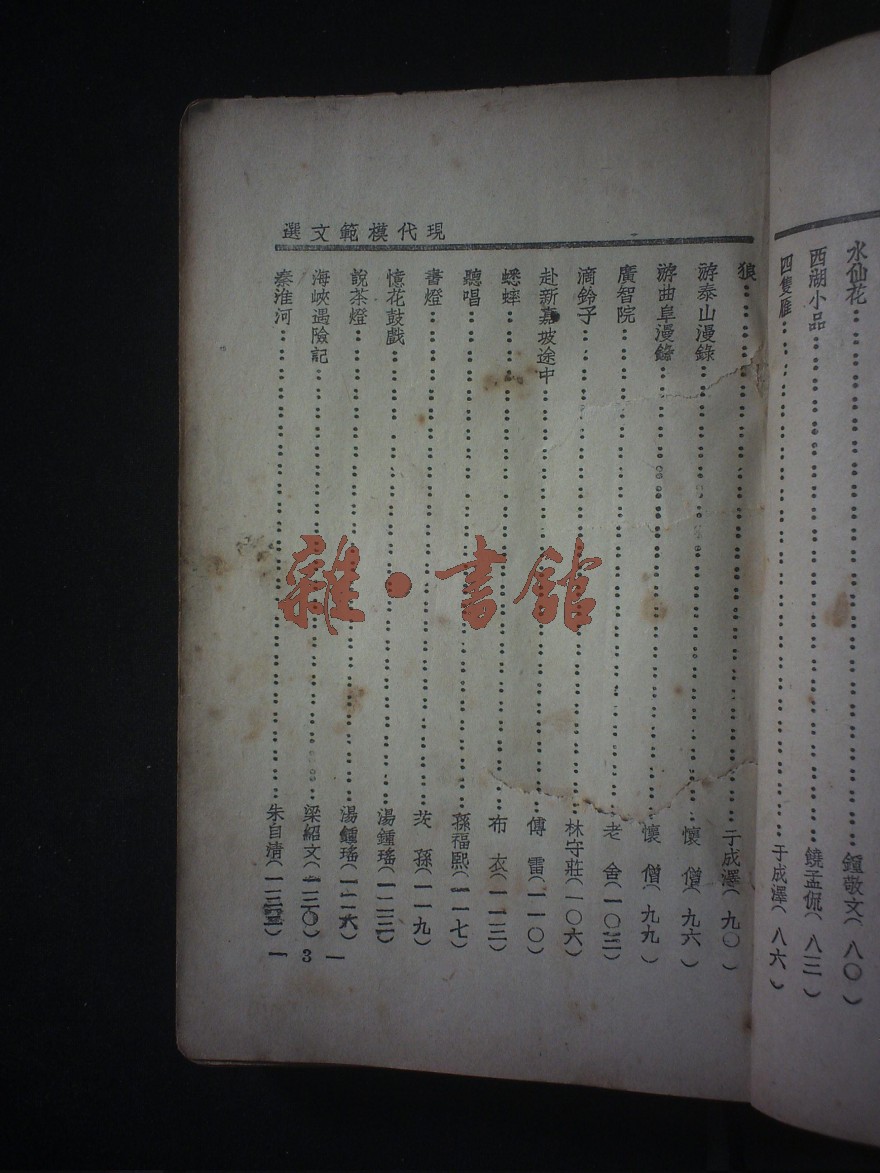 水仙花 鍾敬文(八〇)
西湖小品 饒孟侃(八三)
四隻雁 于成澤(八六)
現代模範文選
狼 于成澤(九〇)
游泰山漫錄 懷僧(九六)
游曲阜漫錄 懷僧(九九)
廣智院 老舍(一〇三)
滴鈴子 林守莊(一〇六)
赴新嘉坡途中 傅雷(一一〇)
蟋蟀 布衣(一一三)
聽唱 孫福熙(一一七)
書燈 茨孫(一一九)
憶花鼓戲 湯鍾瑤(一二三)
說茶燈 湯鍾瑤(一二六)
海峽遇險記 梁紹文(一三〇)
秦淮河 朱自清(一三三)
一 3 一
雜·書館